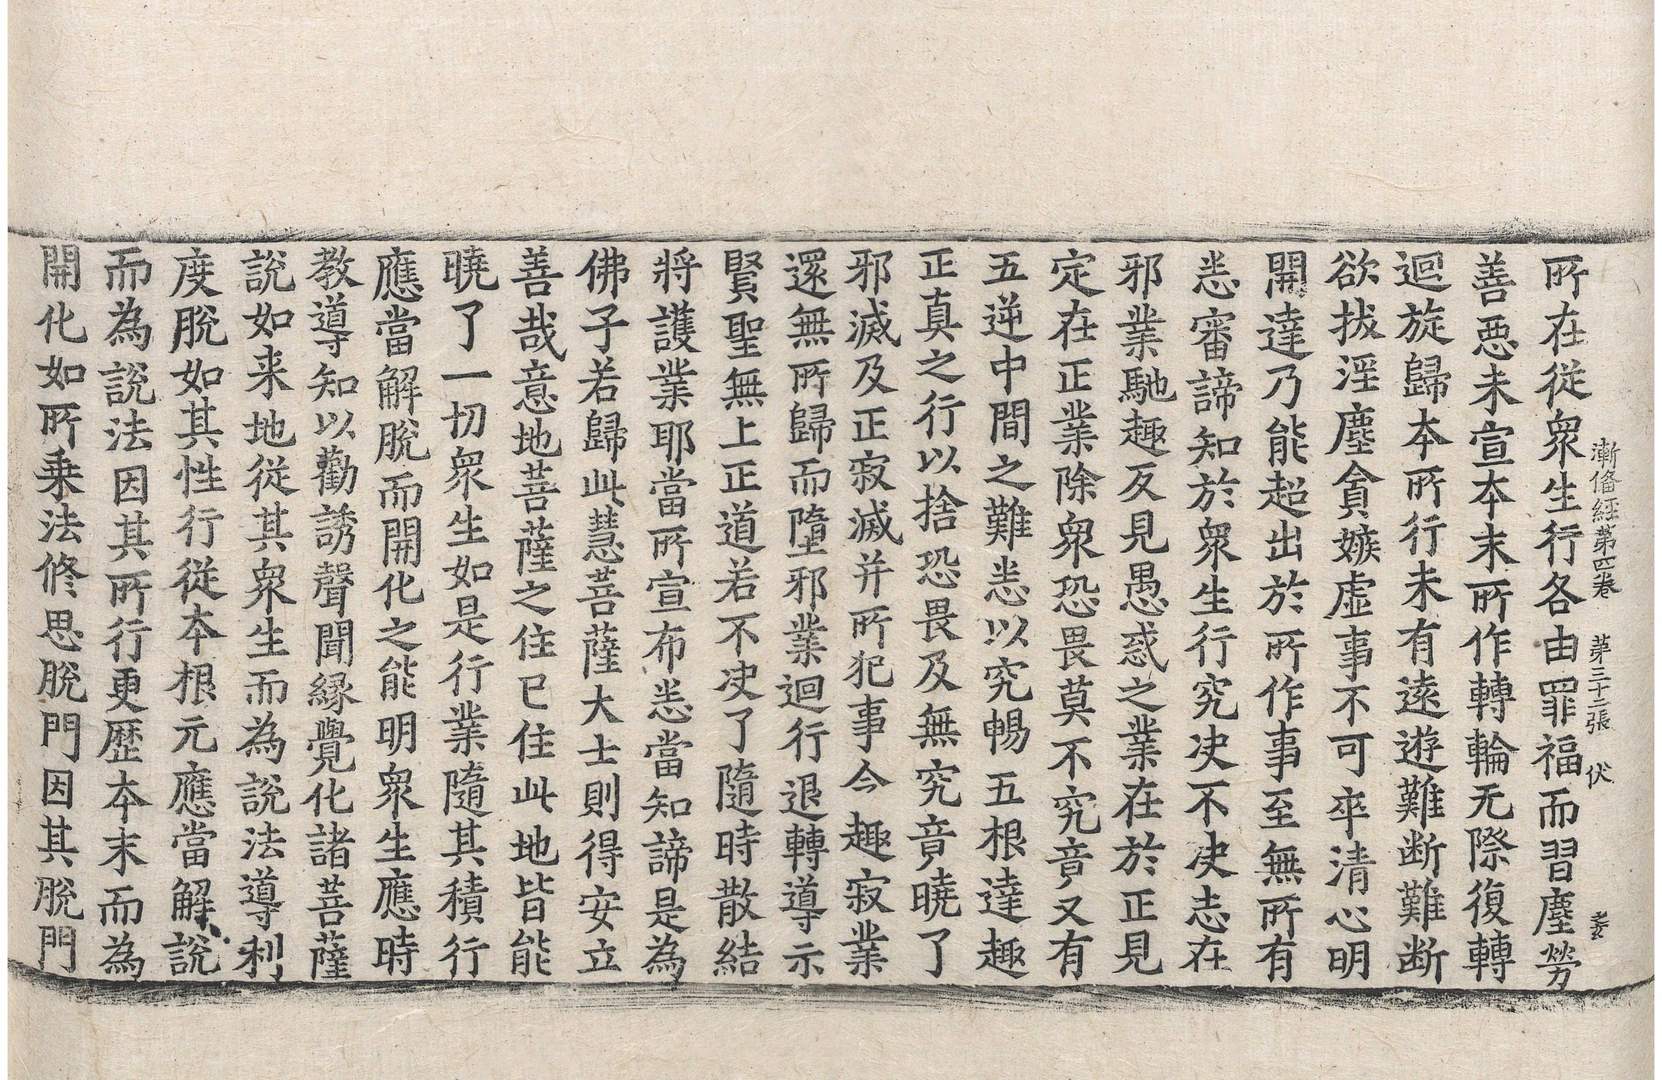 漸俻經第四卷 第三十二張 伏
所在從衆生行各由罪福而習塵勞
善惡未宣本末所作轉輪无際復轉
迴旋歸本所行未有遠遊難断難断
欲拔淫塵貪嫉虛事不可卒清心明
開達乃能超出於所作事至無所有
悉審諦知於衆生行究决不决志在
邪業馳趣反見愚惑之業在於正見
定在正業除衆恐畏莫不究竟又有
五逆中間之難悉以究暢五根達趣
正真之行以捨恐畏及無究竟曉了
邪滅及正寂滅并所犯事今趣寂業
還無所歸而墮邪業迴行退轉導示
賢聖無上正道若不决了隨時散結
將護業耶當所宣布悉當知諦是為
佛子若歸此慧菩薩大士則得安立
善哉意地菩薩之住已住此地皆能
曉了一切衆生如是行業隨其積行
應當解脫而開化之能明衆生應時
教導知以勸誘聲聞緣覺化諸菩薩
說如来地從其衆生而為說法導利
度脫如其性行從本根元應當解說
而為說法因其所行更歷本末而為
開化如所乗法修思脫門因其脫門